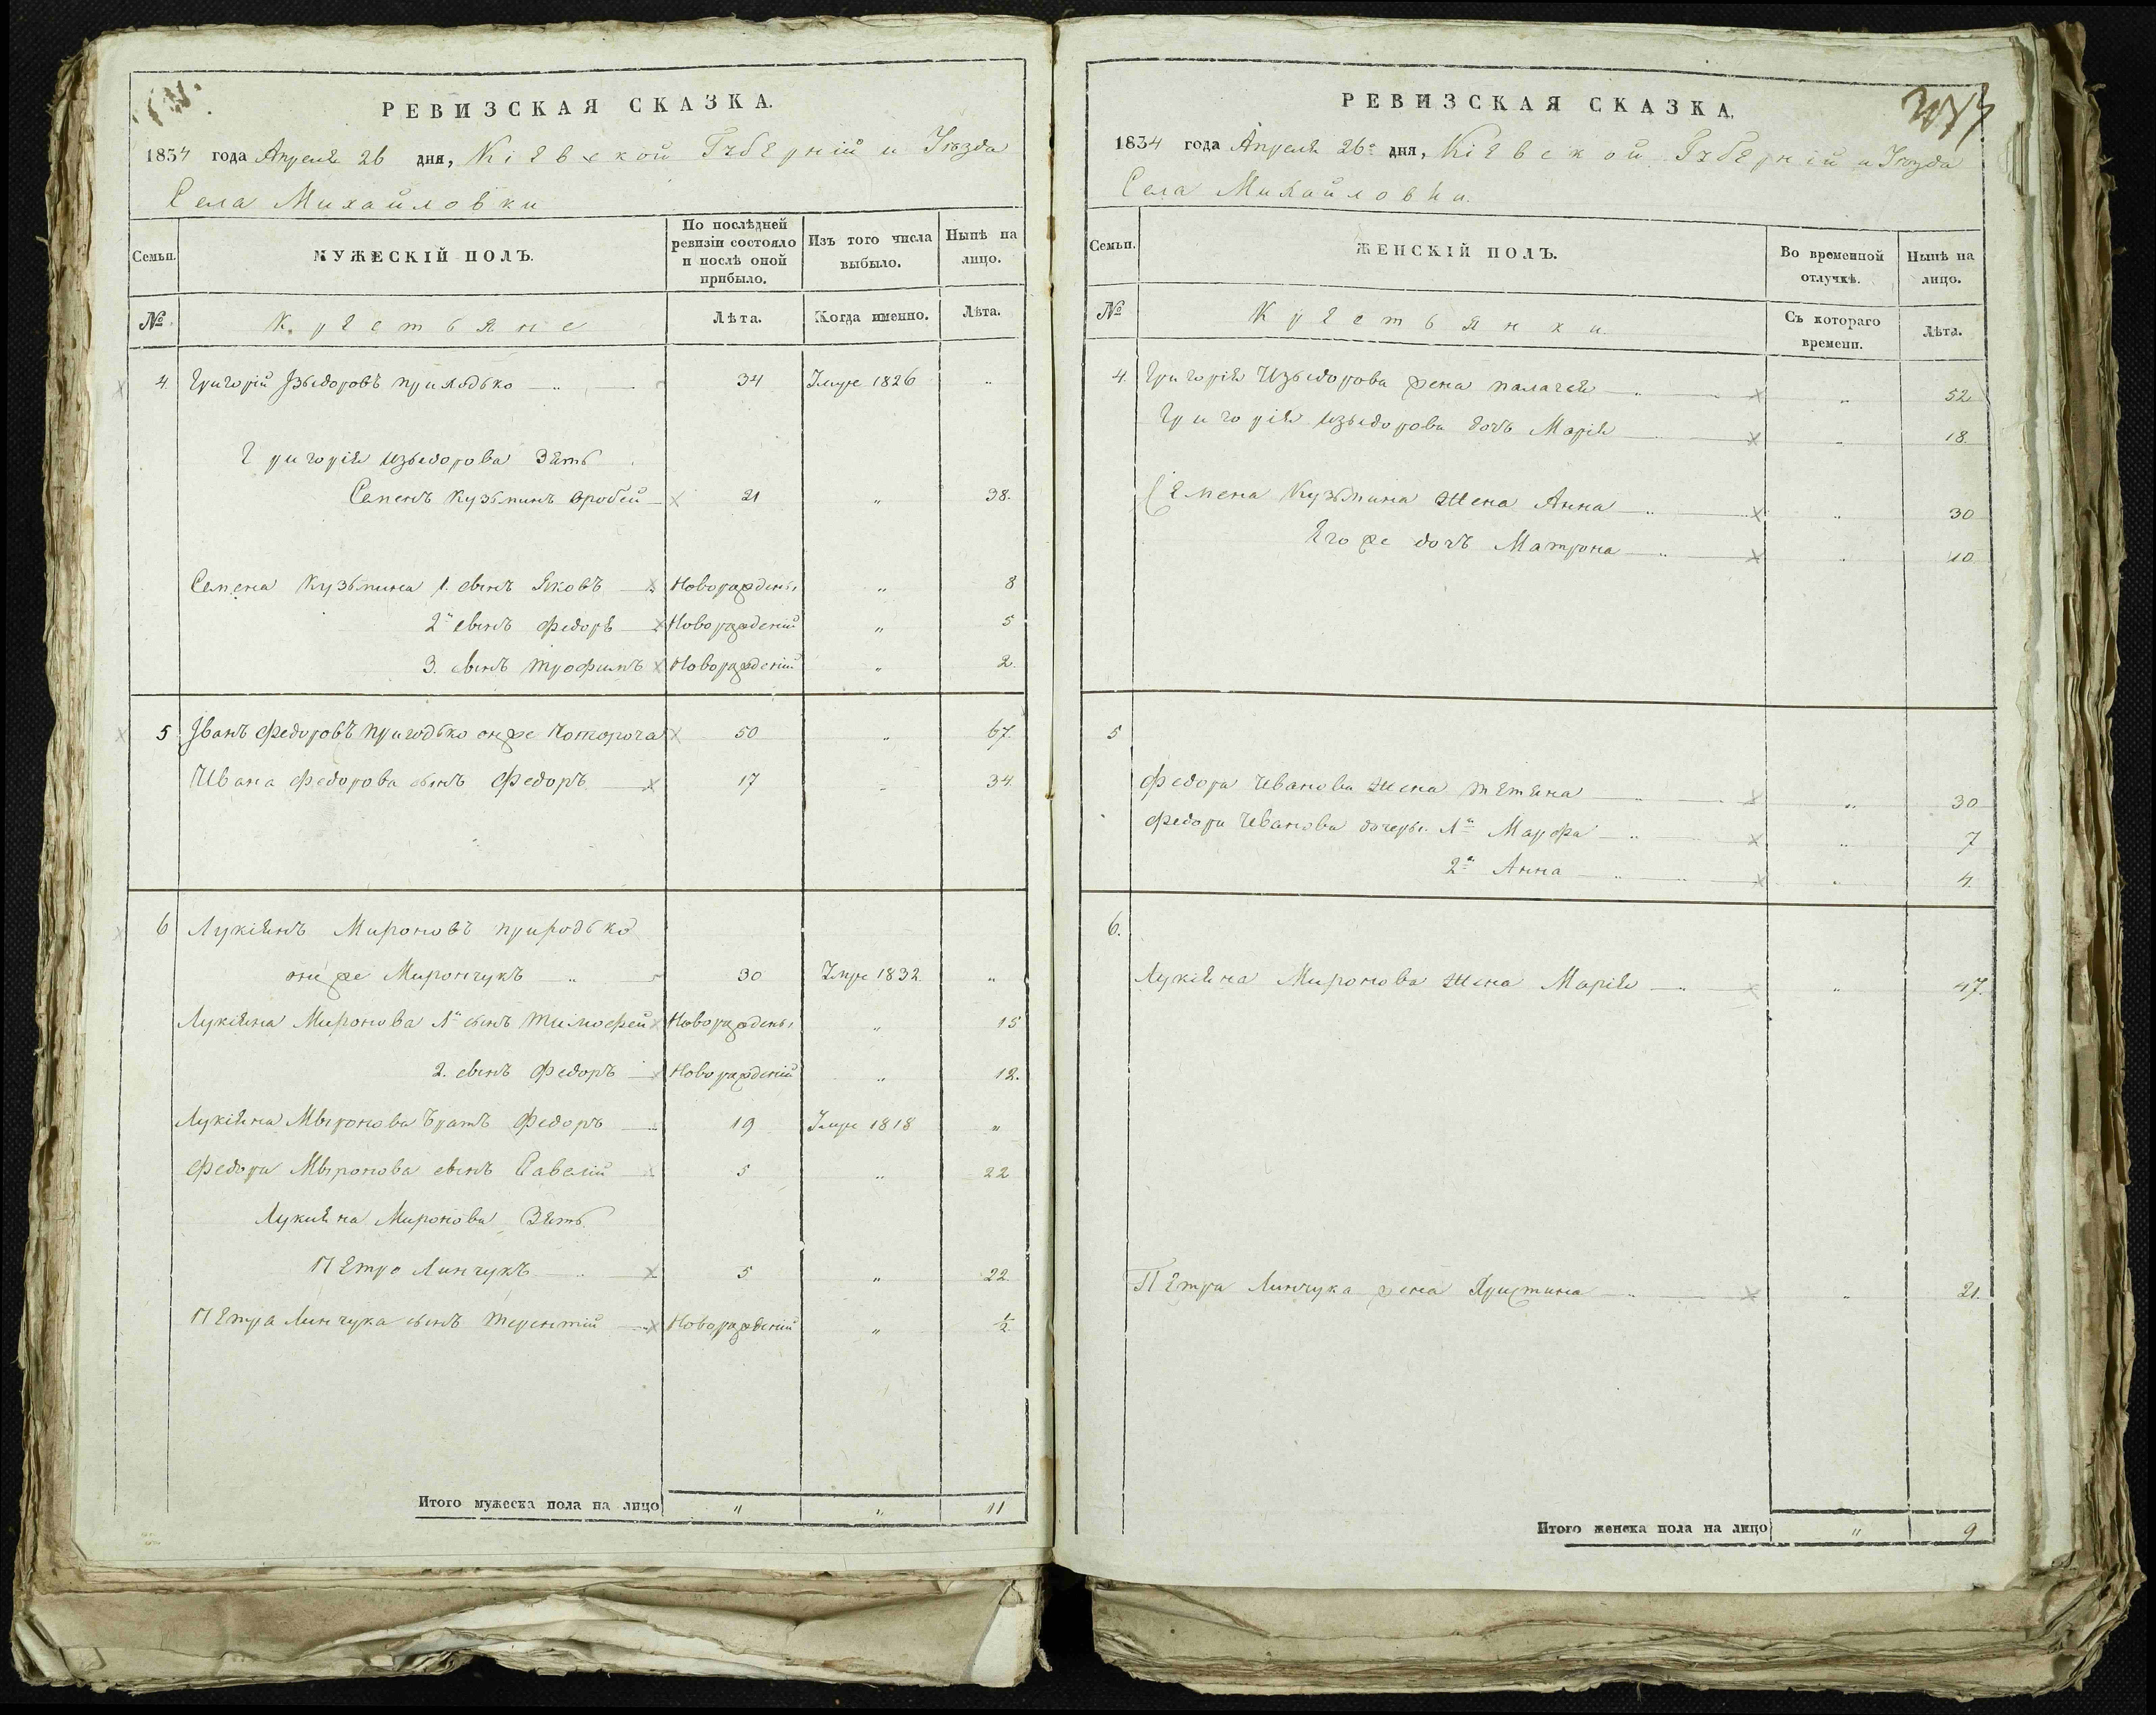 РЕВИЗСКАЯ СКАЗКА.
1834 года Апреля 26 дня, Кіевской Губерній и Уезда
Села Михайловки
Семьи.
МУЖЕСКІЙ ПОЛЪ.
По послѣдней ревизіи состояло и послѣ оной прибыло.
Изъ того числа выбыло.
Нынѣ на лицо.
№
Крестьяне
Лѣта.
Когда именно.
Лѣта.
4 Григорій Ізыдоровъ 34 Умре 1826 „
Григорія Изыдорова Зять
Семенъ Кузьминъ 21 „ 38.
Семена Кузьмина 1. сынъ Яковъ Новорожденъ „ 8
2й сынъ Федоръ Новорожденій „ 5
3. сынъ Трофимъ Новорожденій „ 2.
5 Іванъ Федоровъ онже 50 „ 67.
Ивана Федорова сынъ Федоръ 17 „ 34.
6 Лукіянъ Мироновъ
онже Мирончукъ 30 Умре 1832 „
Лукіяна Миронова 1й сынъ Тимофей Новорожденъ „ 15
2. сынъ Федоръ Новорожденій „ 12.
Лукіяна Мыронова братъ Федоръ 19 Умре 1818 „
Федора Мыронова сынъ Савелій 5 „ 22
Лукияна Миронова Зять
Петро Линчукъ 5 „ 22.
Петра Линчука сынъ Терентій Новорожденій „ 1/2
Итого мужеска пола на лицо „ „ 11
РЕВИЗСКАЯ СКАЗКА.
1834 года Апреля 26го дня, Кіевской Губерній и Уезда
Села Михайловки.
Семьи.
ЖЕНСКІЙ ПОЛЪ.
Во временной отлучкѣ.
Нынѣ на лицо.
№
Крестьянки
Съ котораго времени.
Лѣта.
4. Григорія Изыдорова жена Палагея „ 52
Григорія Изыдорова дочь Марія „ 18.
Семена Кузьмина жена Анна „ 30
Его же дочь Матрона „ 10
5
Федора Иванова жена Тетяна „ 30
Федора Иванова дочеры. 1я Марфа „ 7
2я Анна „ 4.
6.
Лукіяна Миронова жена Марія „ 47.
Петра Линчука жена Христина „ 21.
Итого женска пола на лицо „ 9